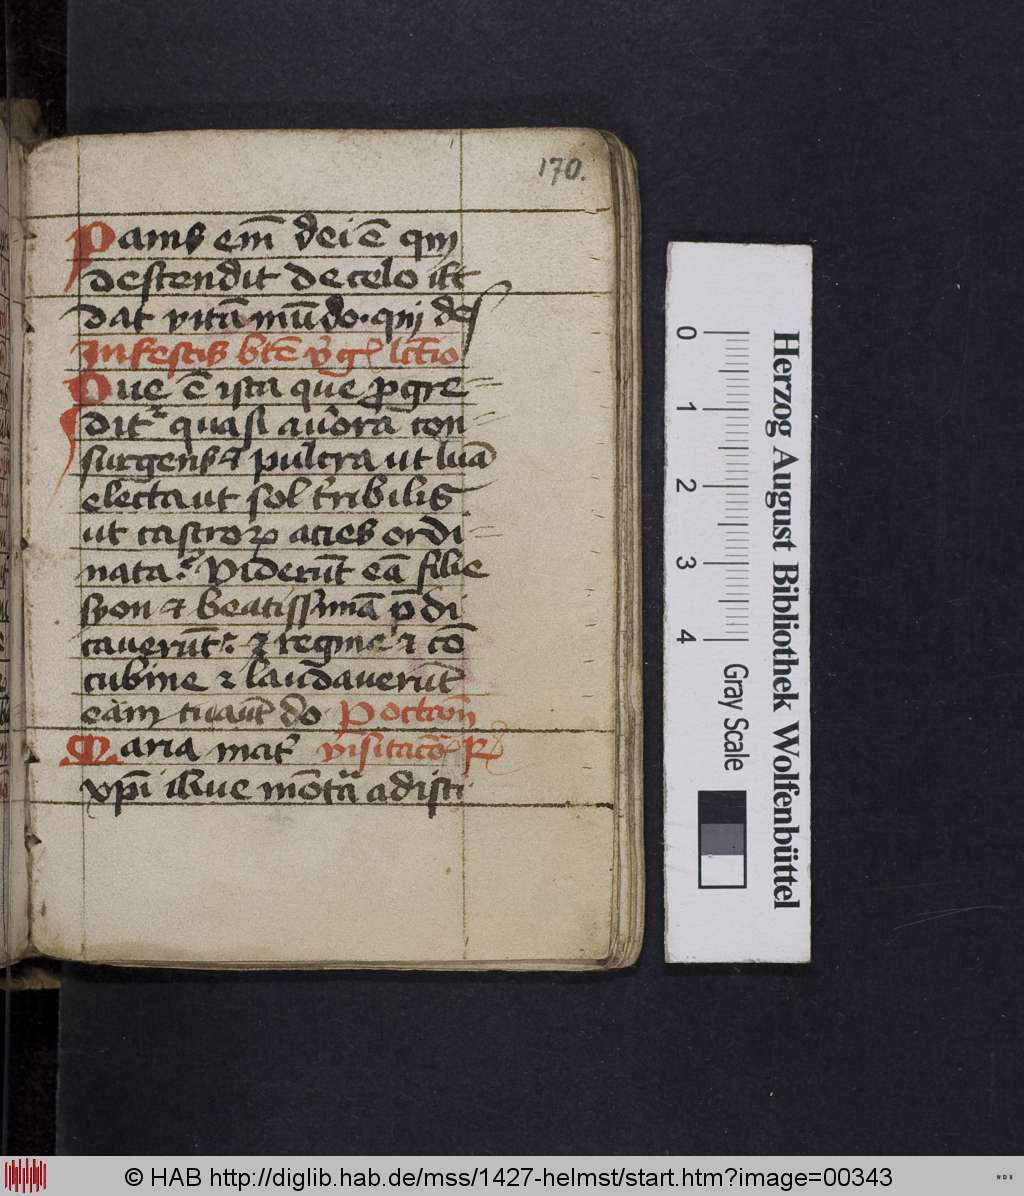 170.
Panis em̄ dei ē qui
descendit de celo ⁊
dat vitā mūdo · qui de
In festis btē v̉gĩ lctio
Que ē ista que ꝓgre=
dit̉ quasi aurora con
surgens ⁊ pulcra ut luā
electa ut sol t̉ribilis
ut castroꝝ acies ordi=
nata. Viderūt eā filie
syon ⁊ beatissimā p̄di
caverūt. ⁊ regine ⁊ cō
cubine ⁊ laudaverūt
eam tu aūt do P octavā
Maria mat̉ visitacōs R
xp̄i ihūe mōtana adisti
0 1 2 3 4
Gray Scale
Herzog August Bibliothek Wolfenbüttel
© HAB http://diglib.hab.de/mss/1427-helmst/start.htm?image=00343